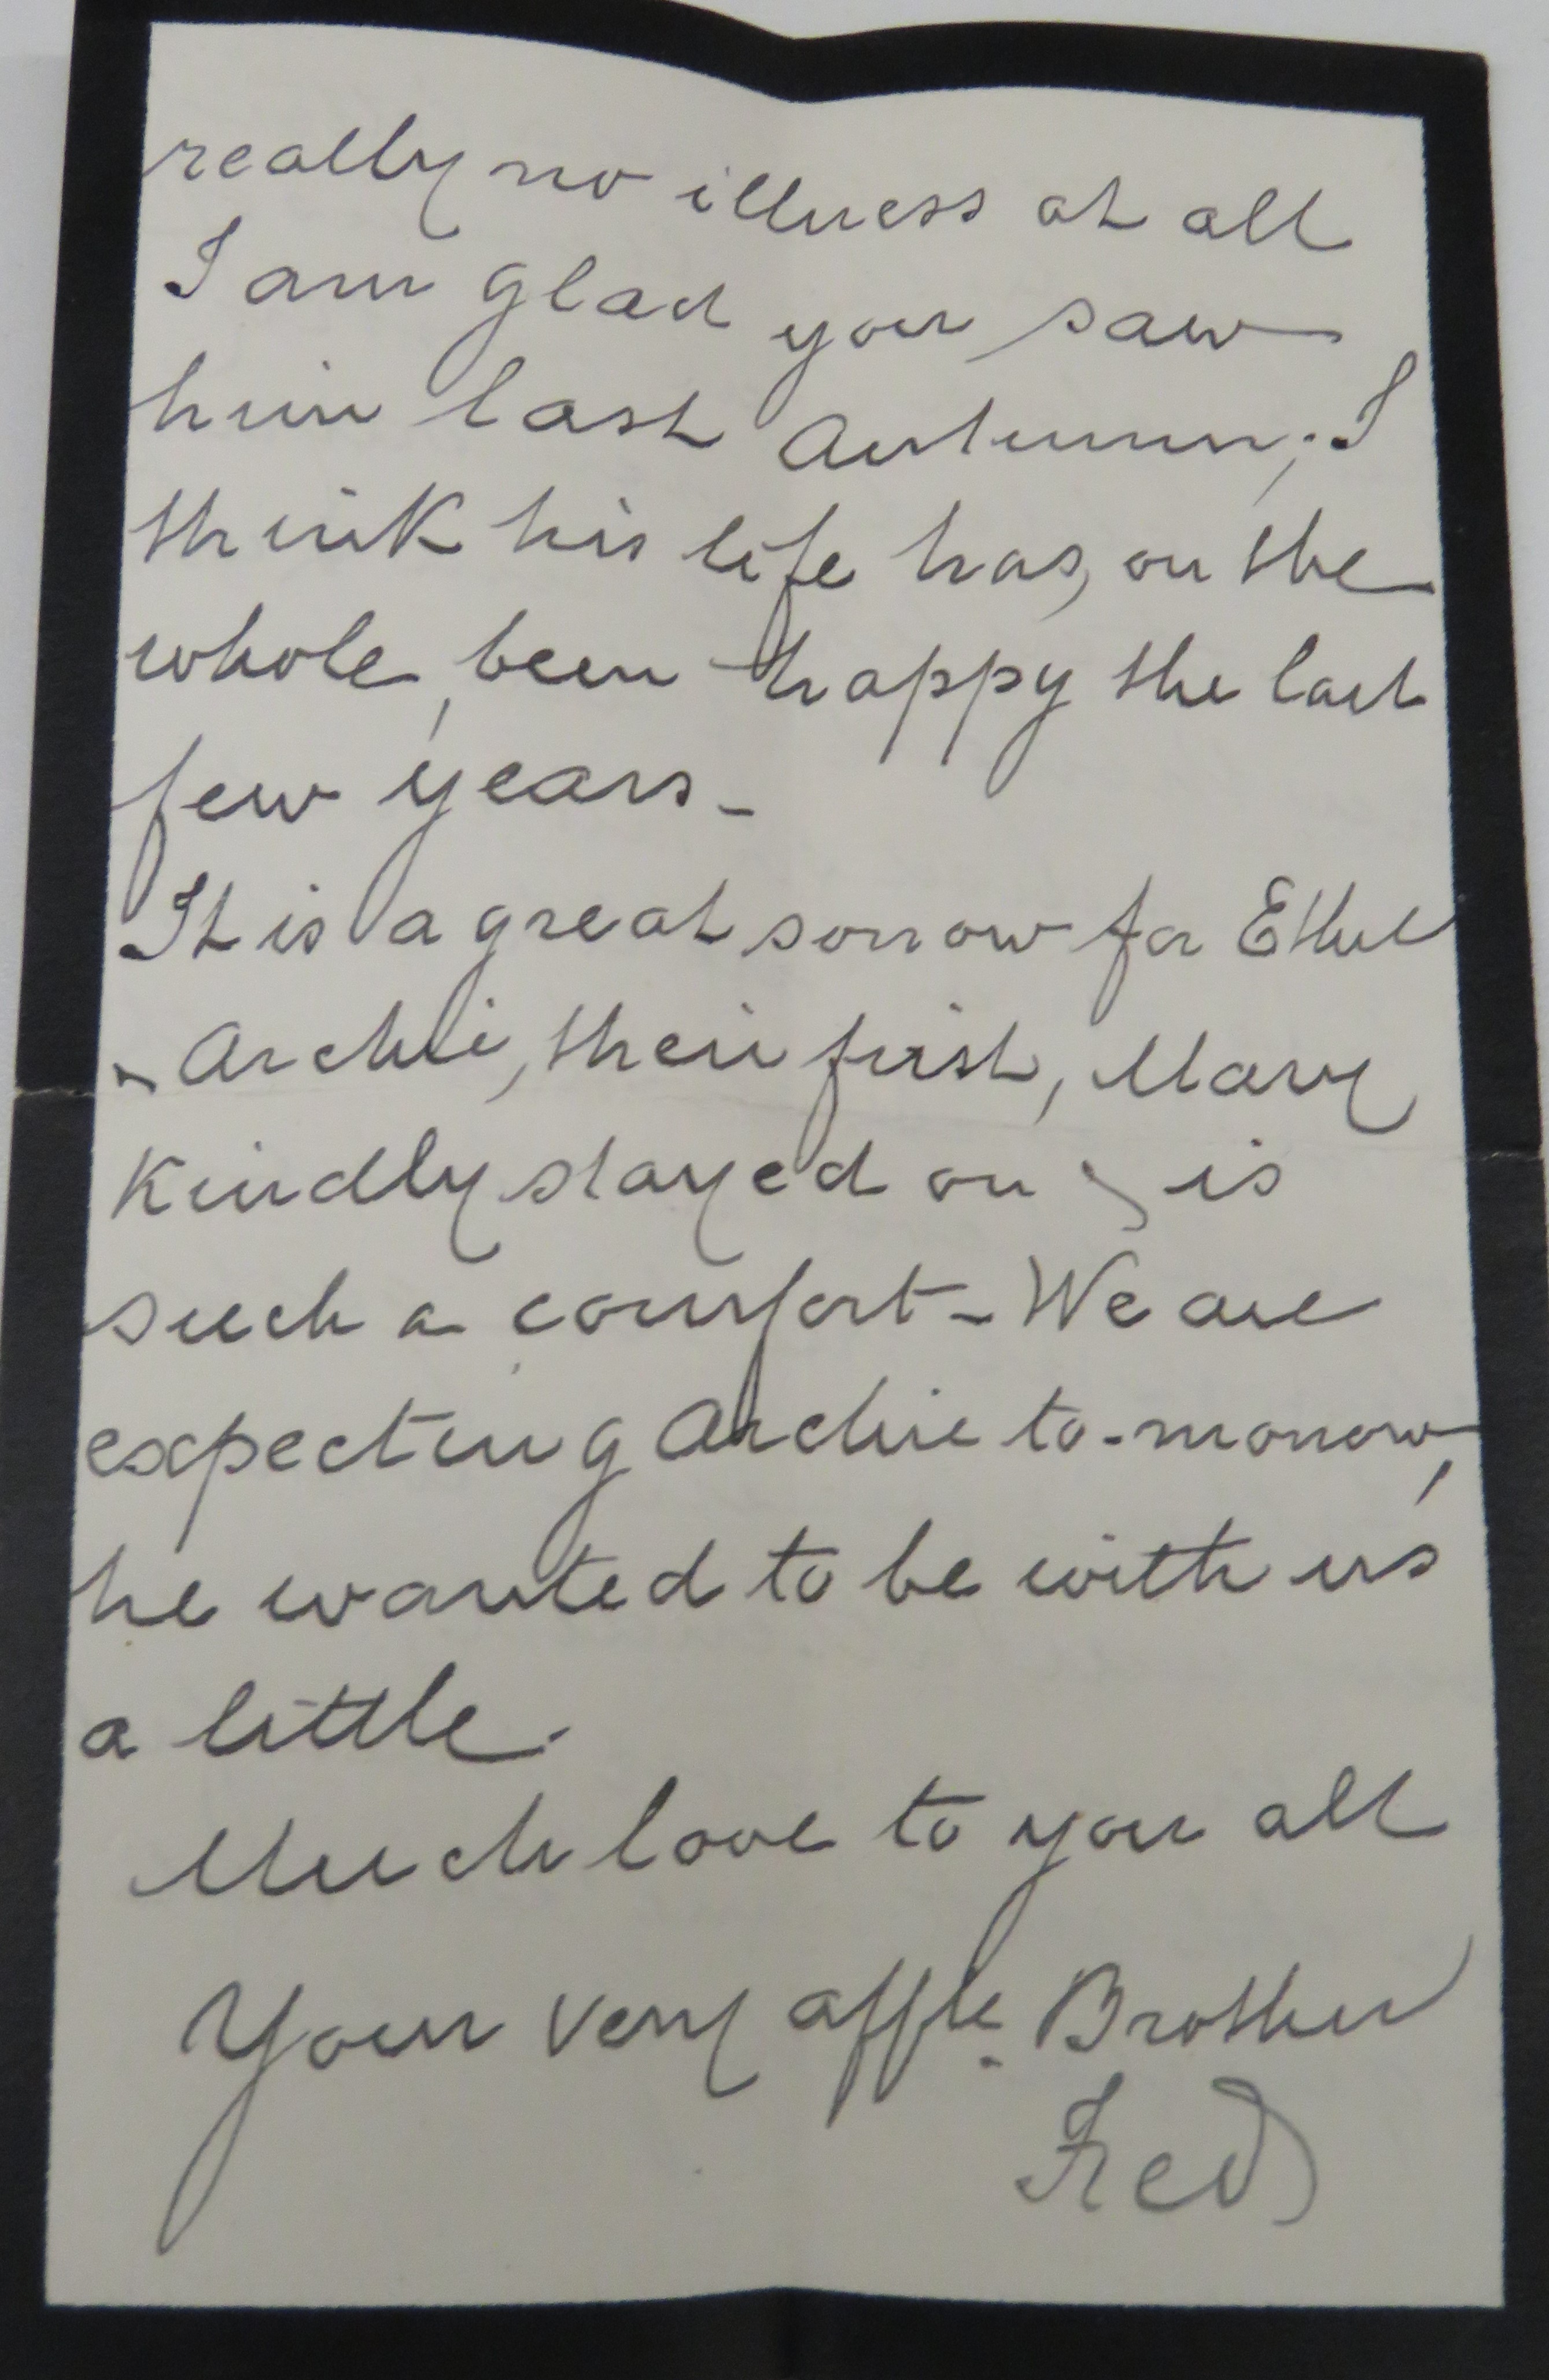 really no illness at all
I am glad you saw
him last Autumn; I
think his life has, on the
whole, been happy the last
few years -
It is a great sorrow for Ethel
& Archie, their first, Mary
Kindly stayed on & is
such a comfort - We are
expecting Archie to-morrow,
he wanted to be with us
a little.
Much love to you all
Your very affte. Brother
Fred